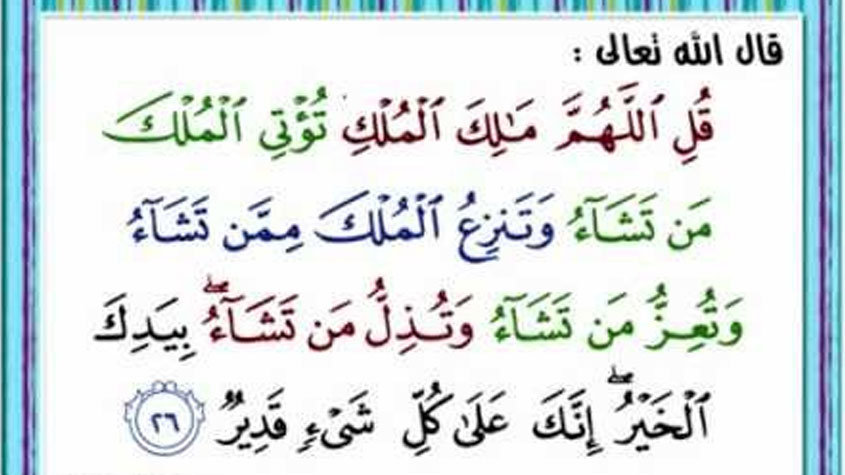 قال الله تعالى :
قُلِ ٱللَّهُمَّ مَـٰلِكَ ٱلْمُلْكِ تُؤْتِى ٱلْمُلْكَ
مَن تَشَآءُ وَتَنزِعُ ٱلْمُلْكَ مِمَّن تَشَآءُ
وَتُعِزُّ مَن تَشَآءُ وَتُذِلُّ مَن تَشَآءُ ۖ بِيَدِكَ
ٱلْخَيْرُ ۖ إِنَّكَ عَلَىٰ كُلِّ شَىْءٍ قَدِيرٌ ٢٦